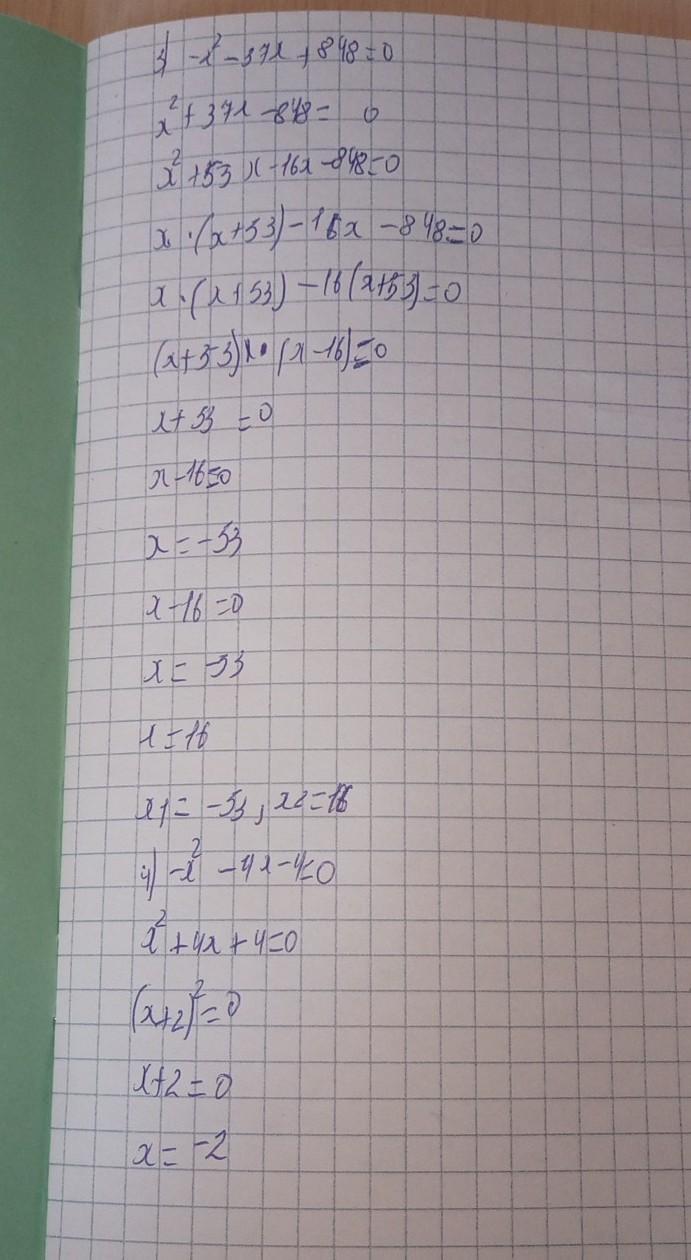 3) -x² - 37x + 848 = 0
x² + 37x - 848 = 0
x² + 53x - 16x - 848 = 0
x · (x+53) - 16x - 848 = 0
x · (x+53) - 16(x+53) = 0
(x+53) · (x-16) = 0
x + 53 = 0
x - 16 = 0
x = -53
x - 16 = 0
x = -53
x = 16
x1 = -53, x2 = 16
4) -x² - 4x - 4 = 0
x² + 4x + 4 = 0
(x+2)² = 0
x + 2 = 0
x = -2